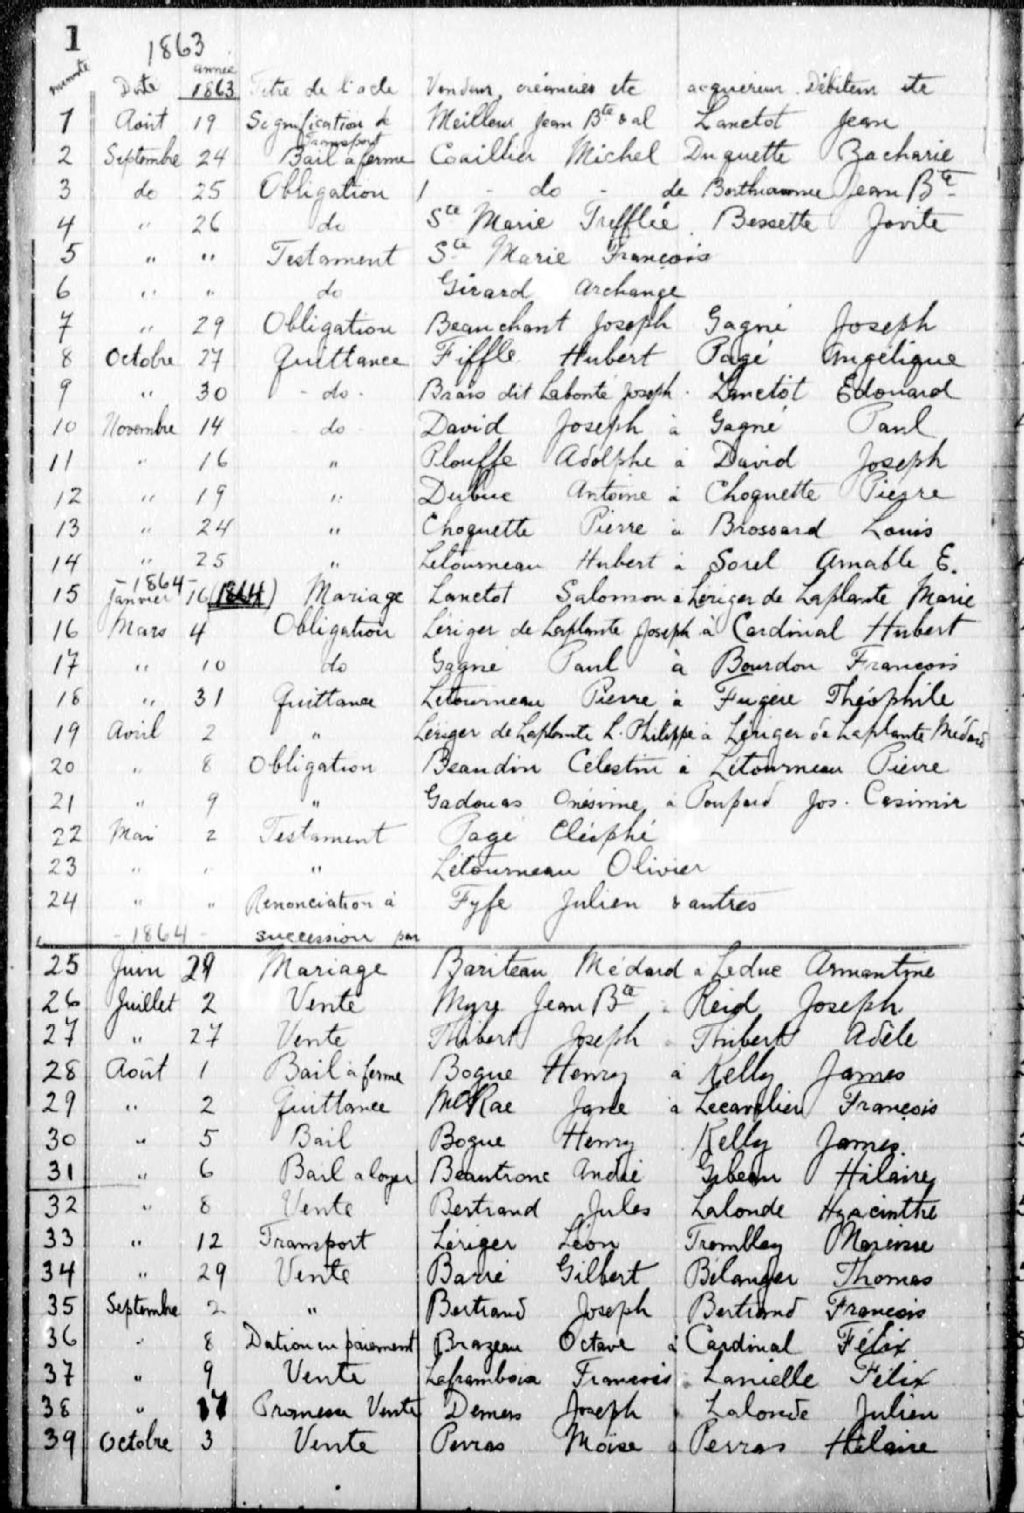 1
1863
minute Date année 1863 Titre de l'acte Vendeur, créanciers etc acquéreur Débiteur etc
1 Août 19 Signification de transport Meilleur Jean Bte & al Lanctot Jean
2 Septembre 24 Bail à ferme Coaillier Michel Duquette Zacharie
3 do 25 Obligation 1 - do - de Jean Bte
4 " 26 do Ste Marie Trefflée Bessette Jovite
5 " " Testament Ste Marie François
6 " " do Girard Archange
7 " 29 Obligation Beauchant Joseph Gagné Joseph
8 Octobre 27 Quittance Fiffle Hubert Pagé Angélique
9 " 30 - do - Brais dit Labonté Joseph Lanctôt Edouard
10 Novembre 14 do David Joseph à Gagné Paul
11 " 16 " Plouffe Adolphe à David Joseph
12 " 19 " Dubuc Antoine à Choquette Pierre
13 " 24 " Choquette Pierre à Brossard Louis
14 " 25 " Létourneau Hubert à Sorel Amable E.
15 -1864- Janvier 16 Mariage Lanctot Salomon à Lériger de Laplante Marie
16 Mars 4 Obligation Lériger de Laplante Joseph à Cardinal Hubert
17 " 10 do Gagné Paul à Bourdon François
18 " 31 Quittance Létourneau Pierre à Fugère Théophile
19 Avril 2 " Lériger de Laplante L. Philippe à Lériger de Laplante Médard
20 " 8 Obligation Beaudin Célestin à Létourneau Pierre
21 " 9 " Gadouas Onésime à Poupard Jos. Casimir
22 Mai 2 Testament Pagé Cléophé
23 " " " Létourneau Olivier
24 " " Renonciation à Fyfe Julien & autres
- 1864 - succession par
25 Juin 29 Mariage Bariteau Médard à Leduc Armantine
26 Juillet 2 Vente Myre Jean Bte à Reid Joseph
27 " 27 Vente Thibert Joseph à Thibert Adèle
28 Août 1 Bail à ferme Bogue Henry à Kelly James
29 " 2 Quittance McRae Jane à Lecavalier François
30 " 5 Bail Bogue Henry Kelly James
31 " 6 Bail a loyer Beautronc André Gibeau Hilaire
32 " 8 Vente Bertrand Jules Lalonde Hyacinthe
33 " 12 Transport Lériger Léon Trembley
34 " 29 Vente Barré Gilbert Bélanger Thomas
35 Septembre 2 " Bertrand Joseph Bertrand François
36 " 8 Dation en paiement Brazeau Octave à Cardinal Félix
37 " 9 Vente Laframboise François Lanielle Félix
38 " 17 Promesse Vente Demers Joseph Lalonde Julien
39 Octobre 3 Vente Perras Moïse à Perras Hilaire